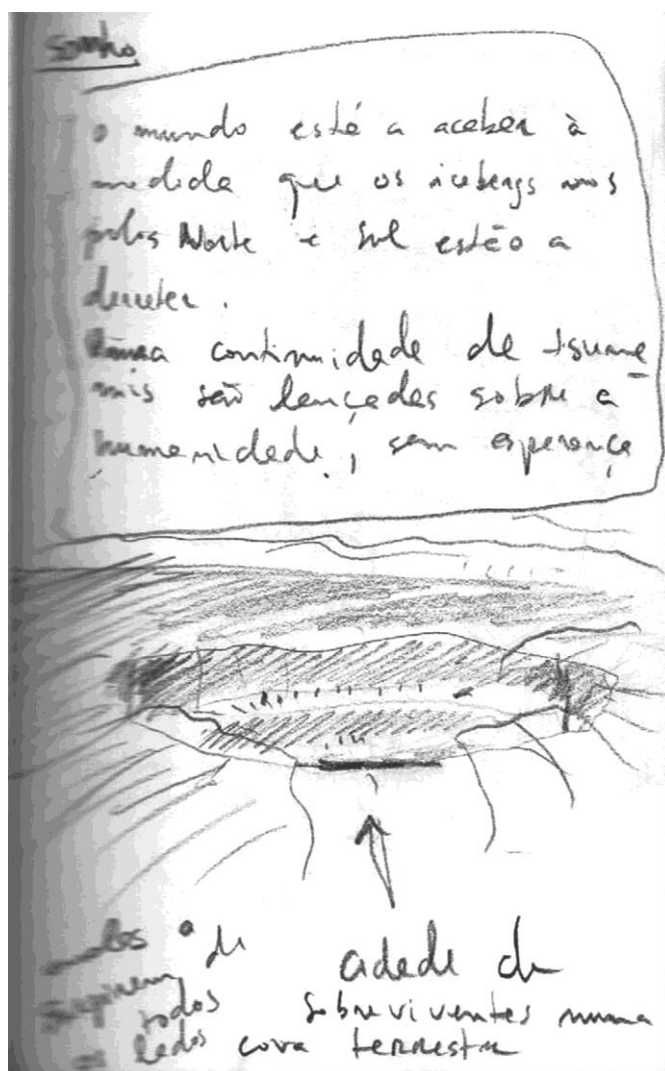 sonho
o mundo está a acabar à
medida que os icebergs nos
polos Norte e Sul estão a
derreter.
continuidade de tsuna
mis são lançadas sobre a
humanidade, sem esperança
ondas a
surgirem de
todos
os lados
cidade de
sobreviventes numa
cova terrestre